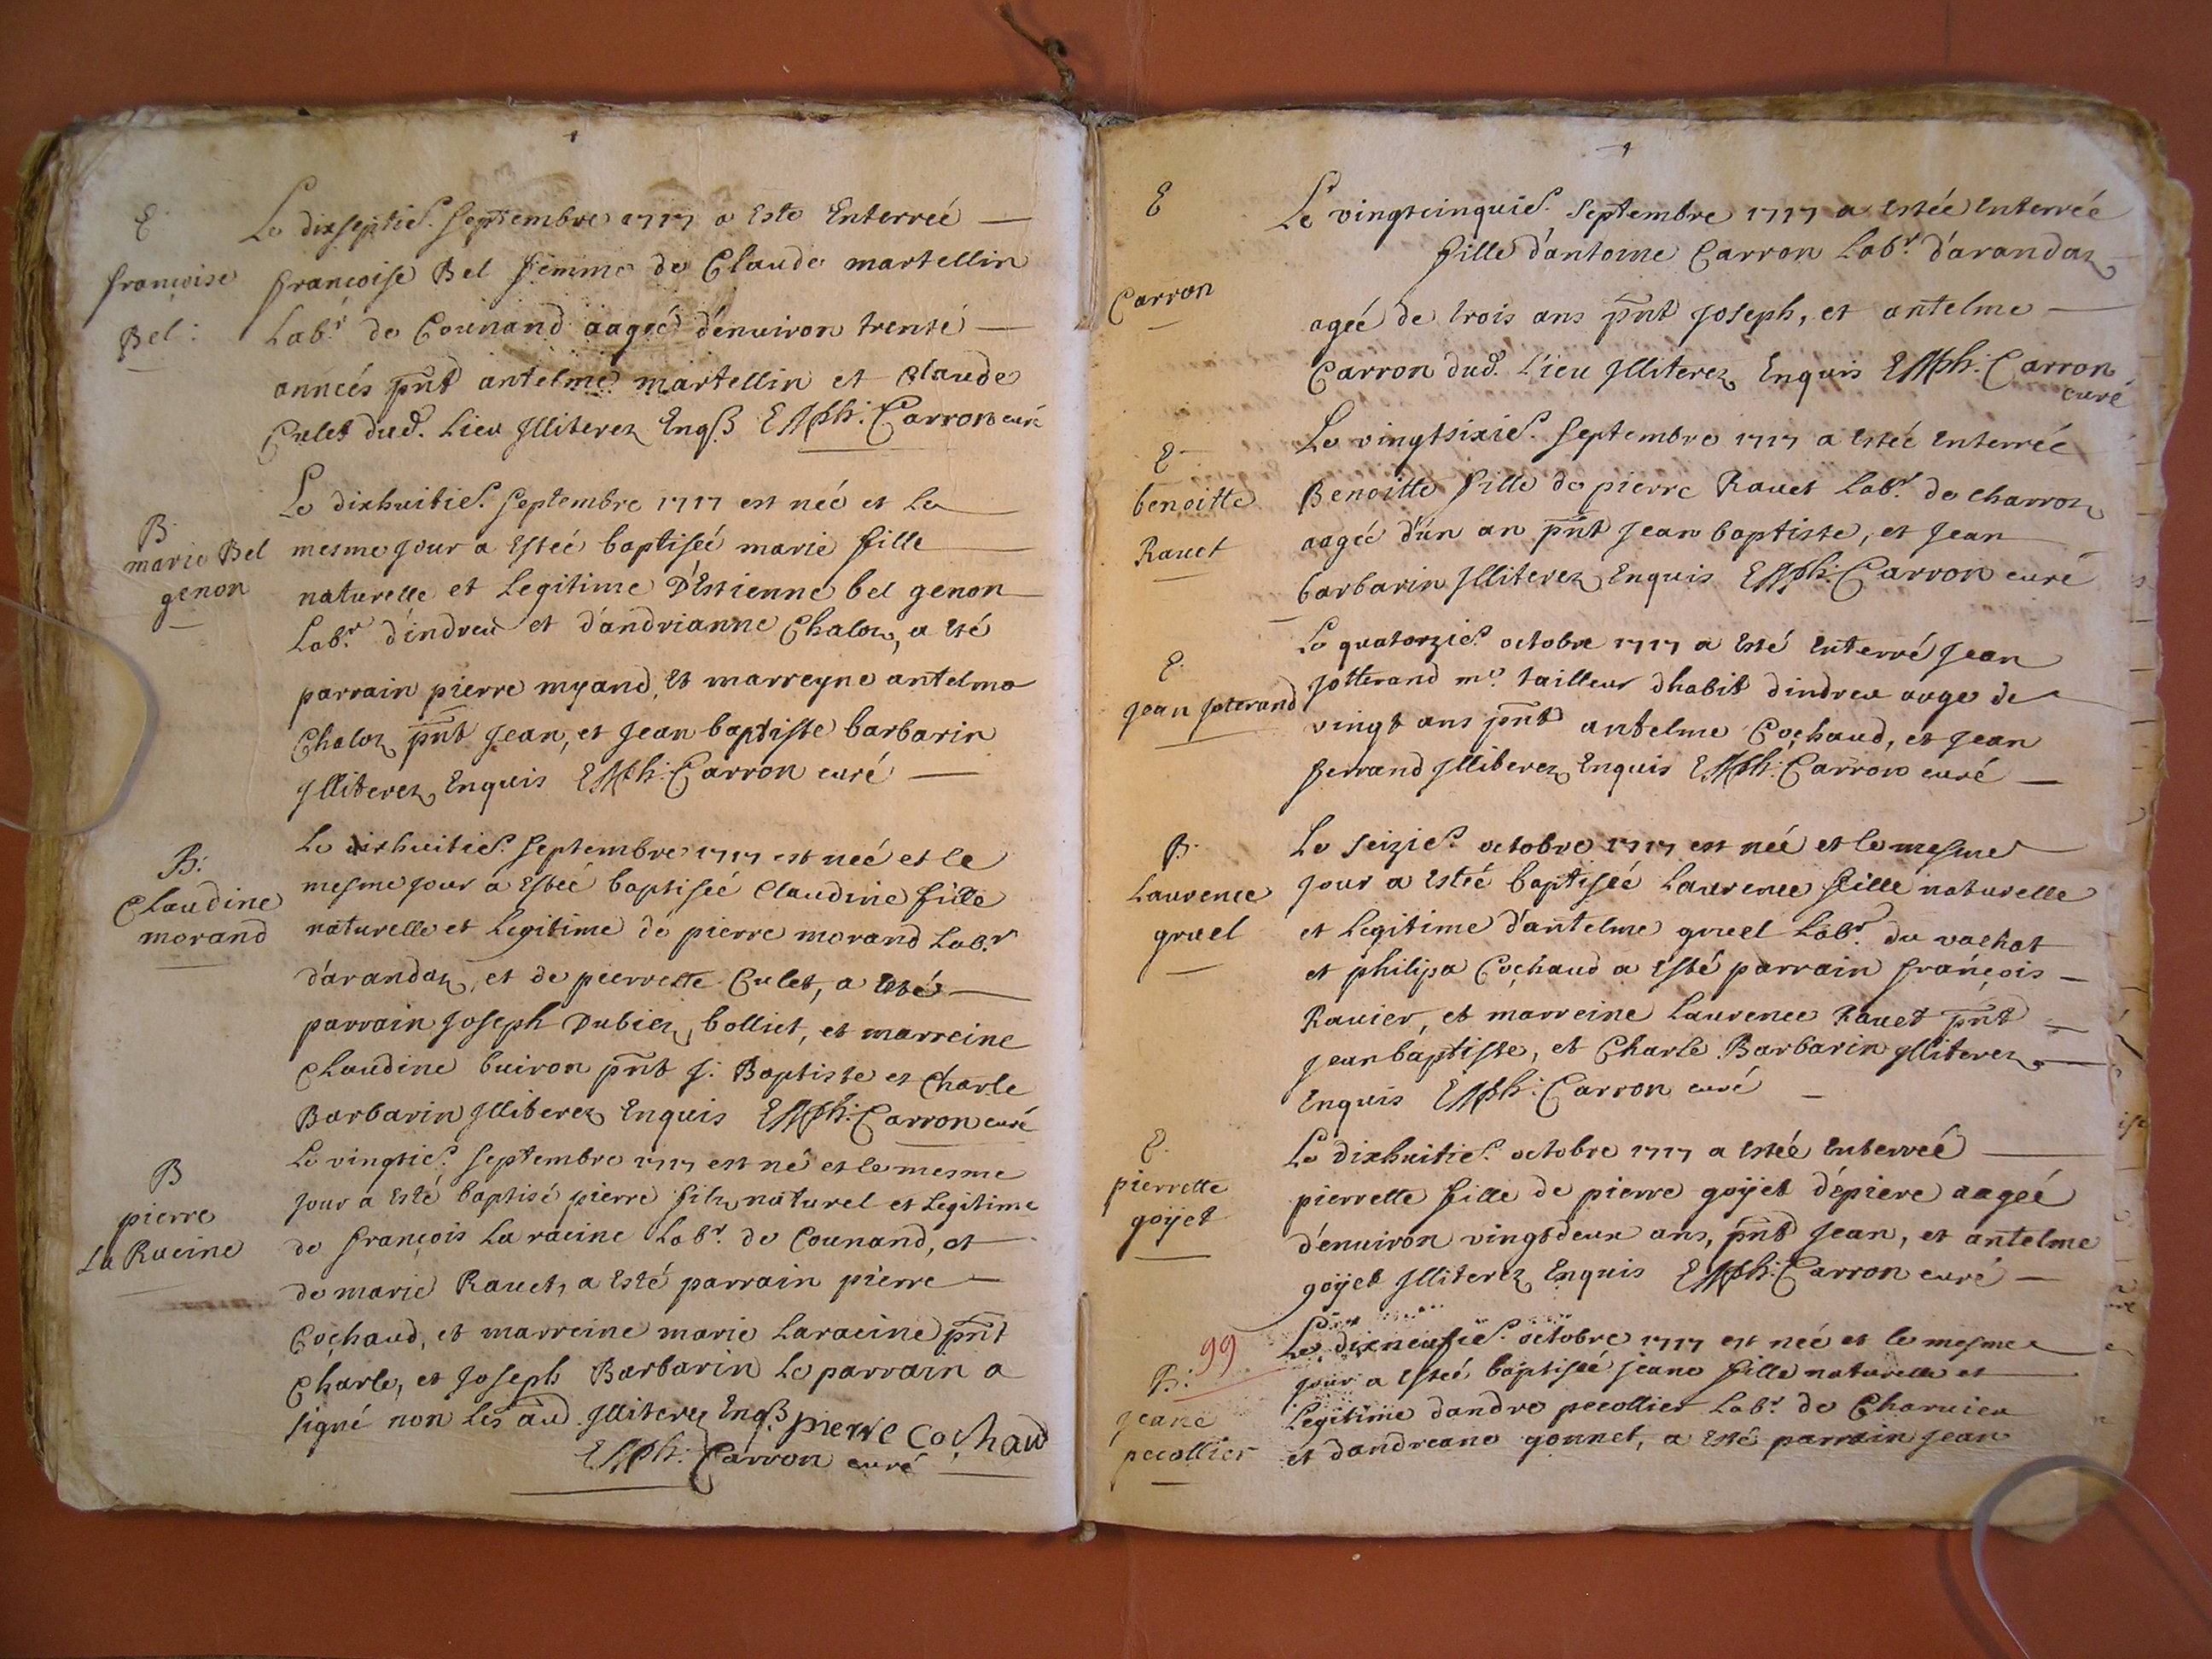 E
françoise
Bel :
Le dixseptie. septembre 1717 a Este Enterreé
françoise Bel femme de Claude martellin
Labr. de Counand aageé d'enuiron trente
anneés pnt antelme martellin et Claude
Culet dud. Lieu Jlliterez Enqs EMph. Carron curé
B
marie Bel
genon
Le dixhuitie. septembre 1717 est neé et le
mesme jour a Esteé baptiseé marie fille
naturelle et Legitime D'Estienne bel genon
Labr. d'indreu et d'andrianne Chaloz, a Eté
parrain pierre myand, Et marreyne antelma
Chaloz pnt Jean, et Jean baptiste barbarin
Jlliterez Enquis EMph. Carron curé
B.
Claudine
morand
Le dixhuitie. septembre 1717 est neé et le
mesme jour a Esteé baptiseé Claudine fille
naturelle et Legitime de pierre morand Labr
d'arandaz, et de pierrette Culet, a Esté
parrain Joseph Dubiez bolliet, et marreine
Claudine buiron pnt J. Baptiste et Charle
Barbarin Jlliterez Enquis EMph. Carron curé
B
pierre
La Racine
Le vingtie. septembre 1717 est né et le mesme
jour a Esté baptisé pierre filz naturel et Legitime
de françois La racine Labr. de Counand, et
de marie Rauet, a Esté parrain pierre
Coçhaud, et marreine marie Laracine pnt
Charle, et Joseph Barbarin Le parrain a
signé non les aud Jlliterez Enqs pierre Coçhaud
EMph. Carron curé
E
Carron
Le vingtcinquie. septembre 1717 a Estée Enterrée
fille d'antoine Carron Labr. d'arandaz
ageé de trois ans pnt Joseph, et antelme
Carron dud. Lieu Jlliterez Enquis EMph. Carron
curé
E
benoitte
Rauet
Le vingtsixie. septembre 1717 a Esteé Enterreé
Benoitte fille de pierre Rauet Labr. de charroz
aageé d'un an pnt Jean baptiste, et Jean
barbarin Jlliterez Enquis EMph. Carron curé
E.
Jean Joterand
Le quatorzie. octobre 1717 a Esté Enterré Jean
Jotterand me. tailleur dhabit dindreu aage de
vingt ans pnt antelme Coçhaud, et Jean
ferrand Jlliterez Enquis EMph. Carron curé
B.
Laurence
gruel
Le seizie. octobre 1717 est neé et le mesme
jour a Esteé baptiseé Laurence fille naturelle
et Legitime d'antelme gruel Labr. du vachat
et philipa Coçhaud a Esté parrain françois
Rauier, et marreine Laurence Rauet pnt
Jean baptiste, et Charle Barbarin Jlliterez
Enquis EMph. Carron curé
E.
pierrette
goÿet
Le dixhuitie. octobre 1717 a Esteé Enterreé
pierrette fille de pierre goÿet d'epiere aageé
d'enuiron vingtdeux ans, pnt Jean, et antelme
goÿet Jlliterez Enquis EMph. Carron curé
99
B.
Jeane
pecollier
Le dixneufie. octobre 1717 est neé et le mesme
jour a Esteé baptiseé jeane fille naturelle et
Legitime dandre pecollier Labr. de Charuieu
et dandreane gonnet, a Esté parrain Jean